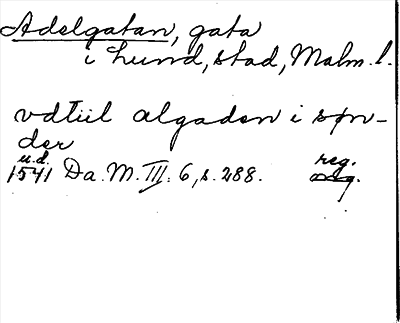 Adelgatan, gata
i Lund, stad, Malm. l.
vdtiil algaden i søn-
der
u.d.
1541 Da. M. III: 6, s. 288.
reg.